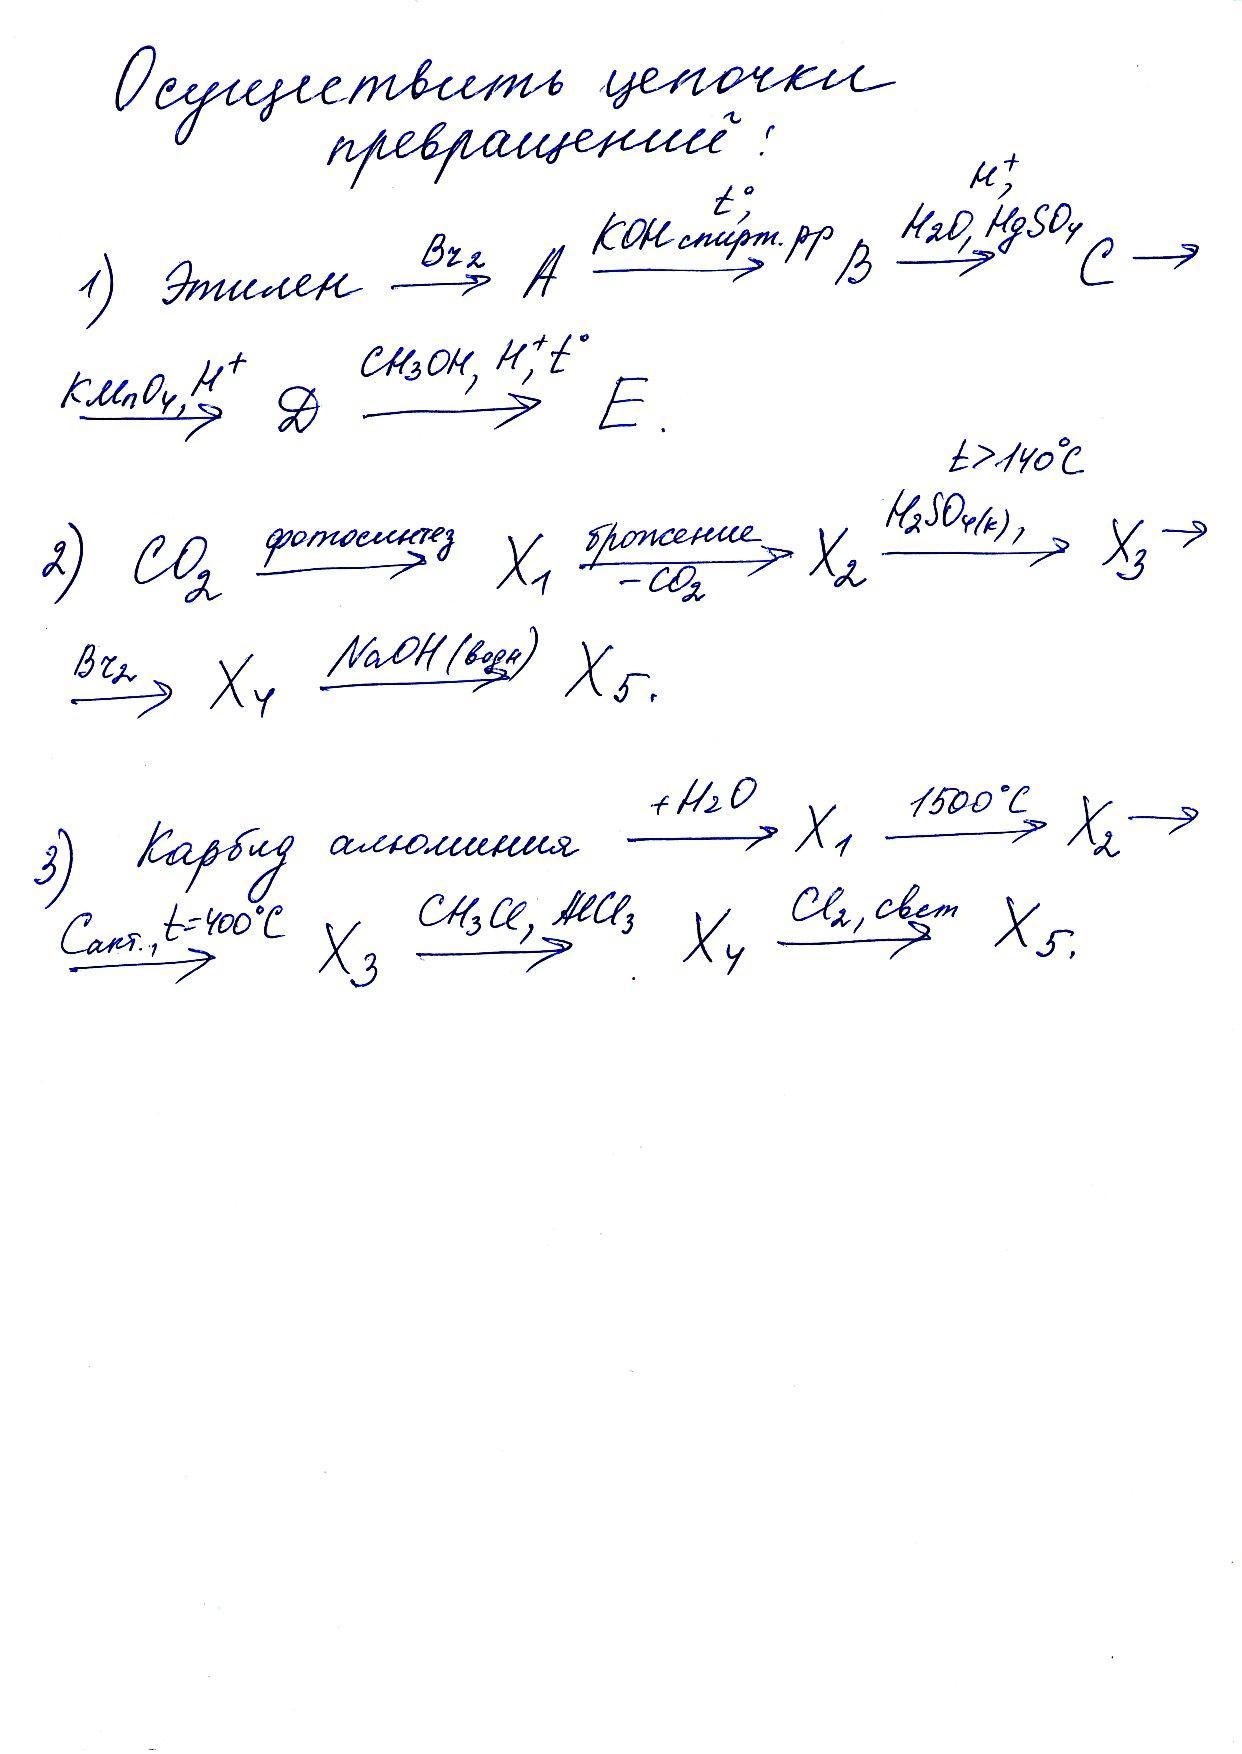 Осуществить цепочки
превращений:
1) Этилен Br2 → A KOH спирт. рр, t°, → B H2O, HgSO4 H+, → C →
KMnO4, H+ → D CH3OH, H+, t° → E.
2) CO2 фотосинтез → X1 брожение -CO2 → X2 H2SO4(к), t>140°C → X3 →
Br2 → X4 NaOH (водн) → X5.
3) Карбид алюминия +H2O → X1 1500°C → X2 →
Cакт., t=400°C → X3 CH3Cl, AlCl3 → X4 Cl2, свет → X5.